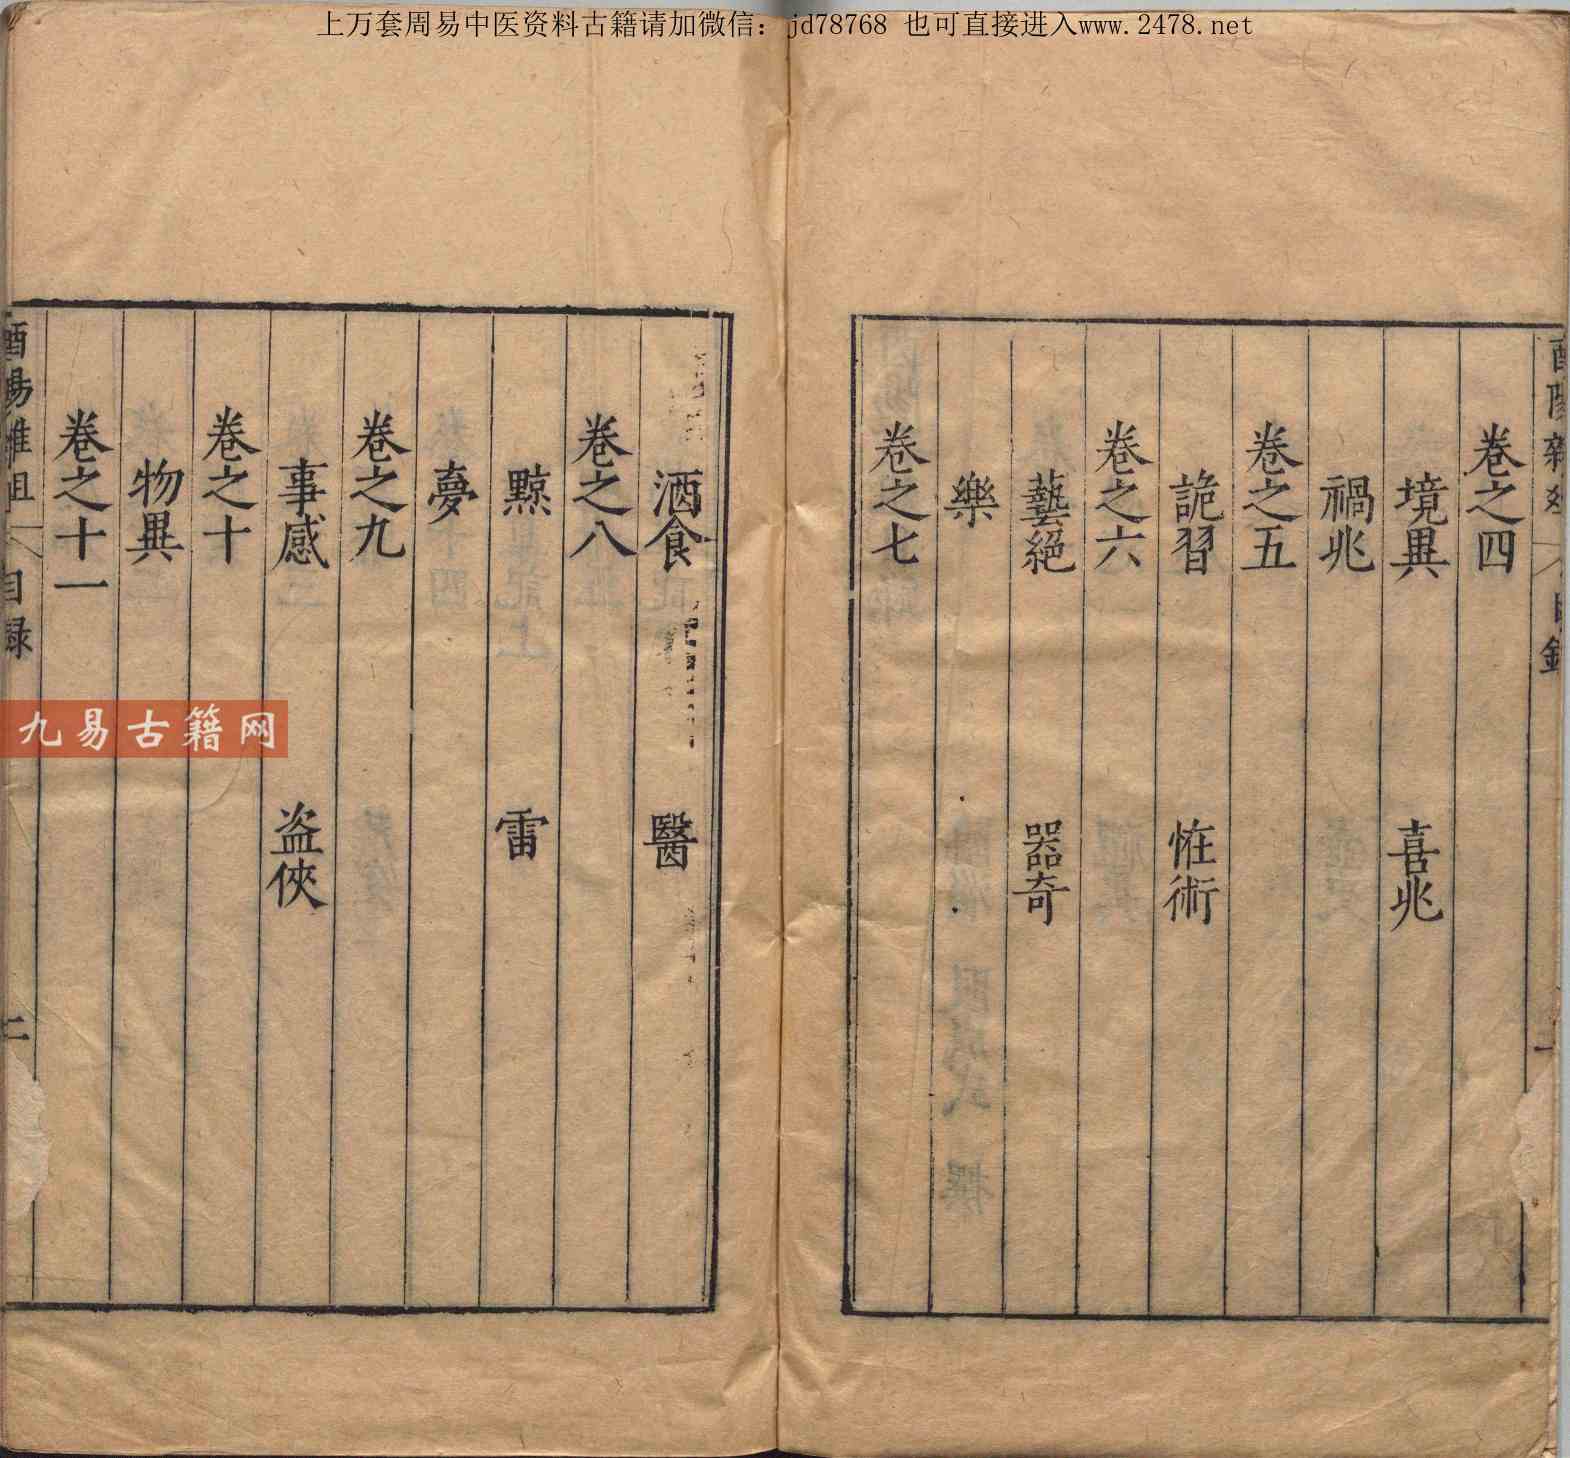 上万套周易中医资料古籍请加微信：jd78768 也可直接进入www.2478.net
卷之四
境異 喜兆
禍兆
卷之五
詭習 恠術
卷之六
藝絕 器奇
樂
卷之七
酒食 醫
卷之八
黥 雷
夢
卷之九
事感 盗俠
卷之十
物異
卷之十一
酉陽雜俎 目録 二
九易古籍网